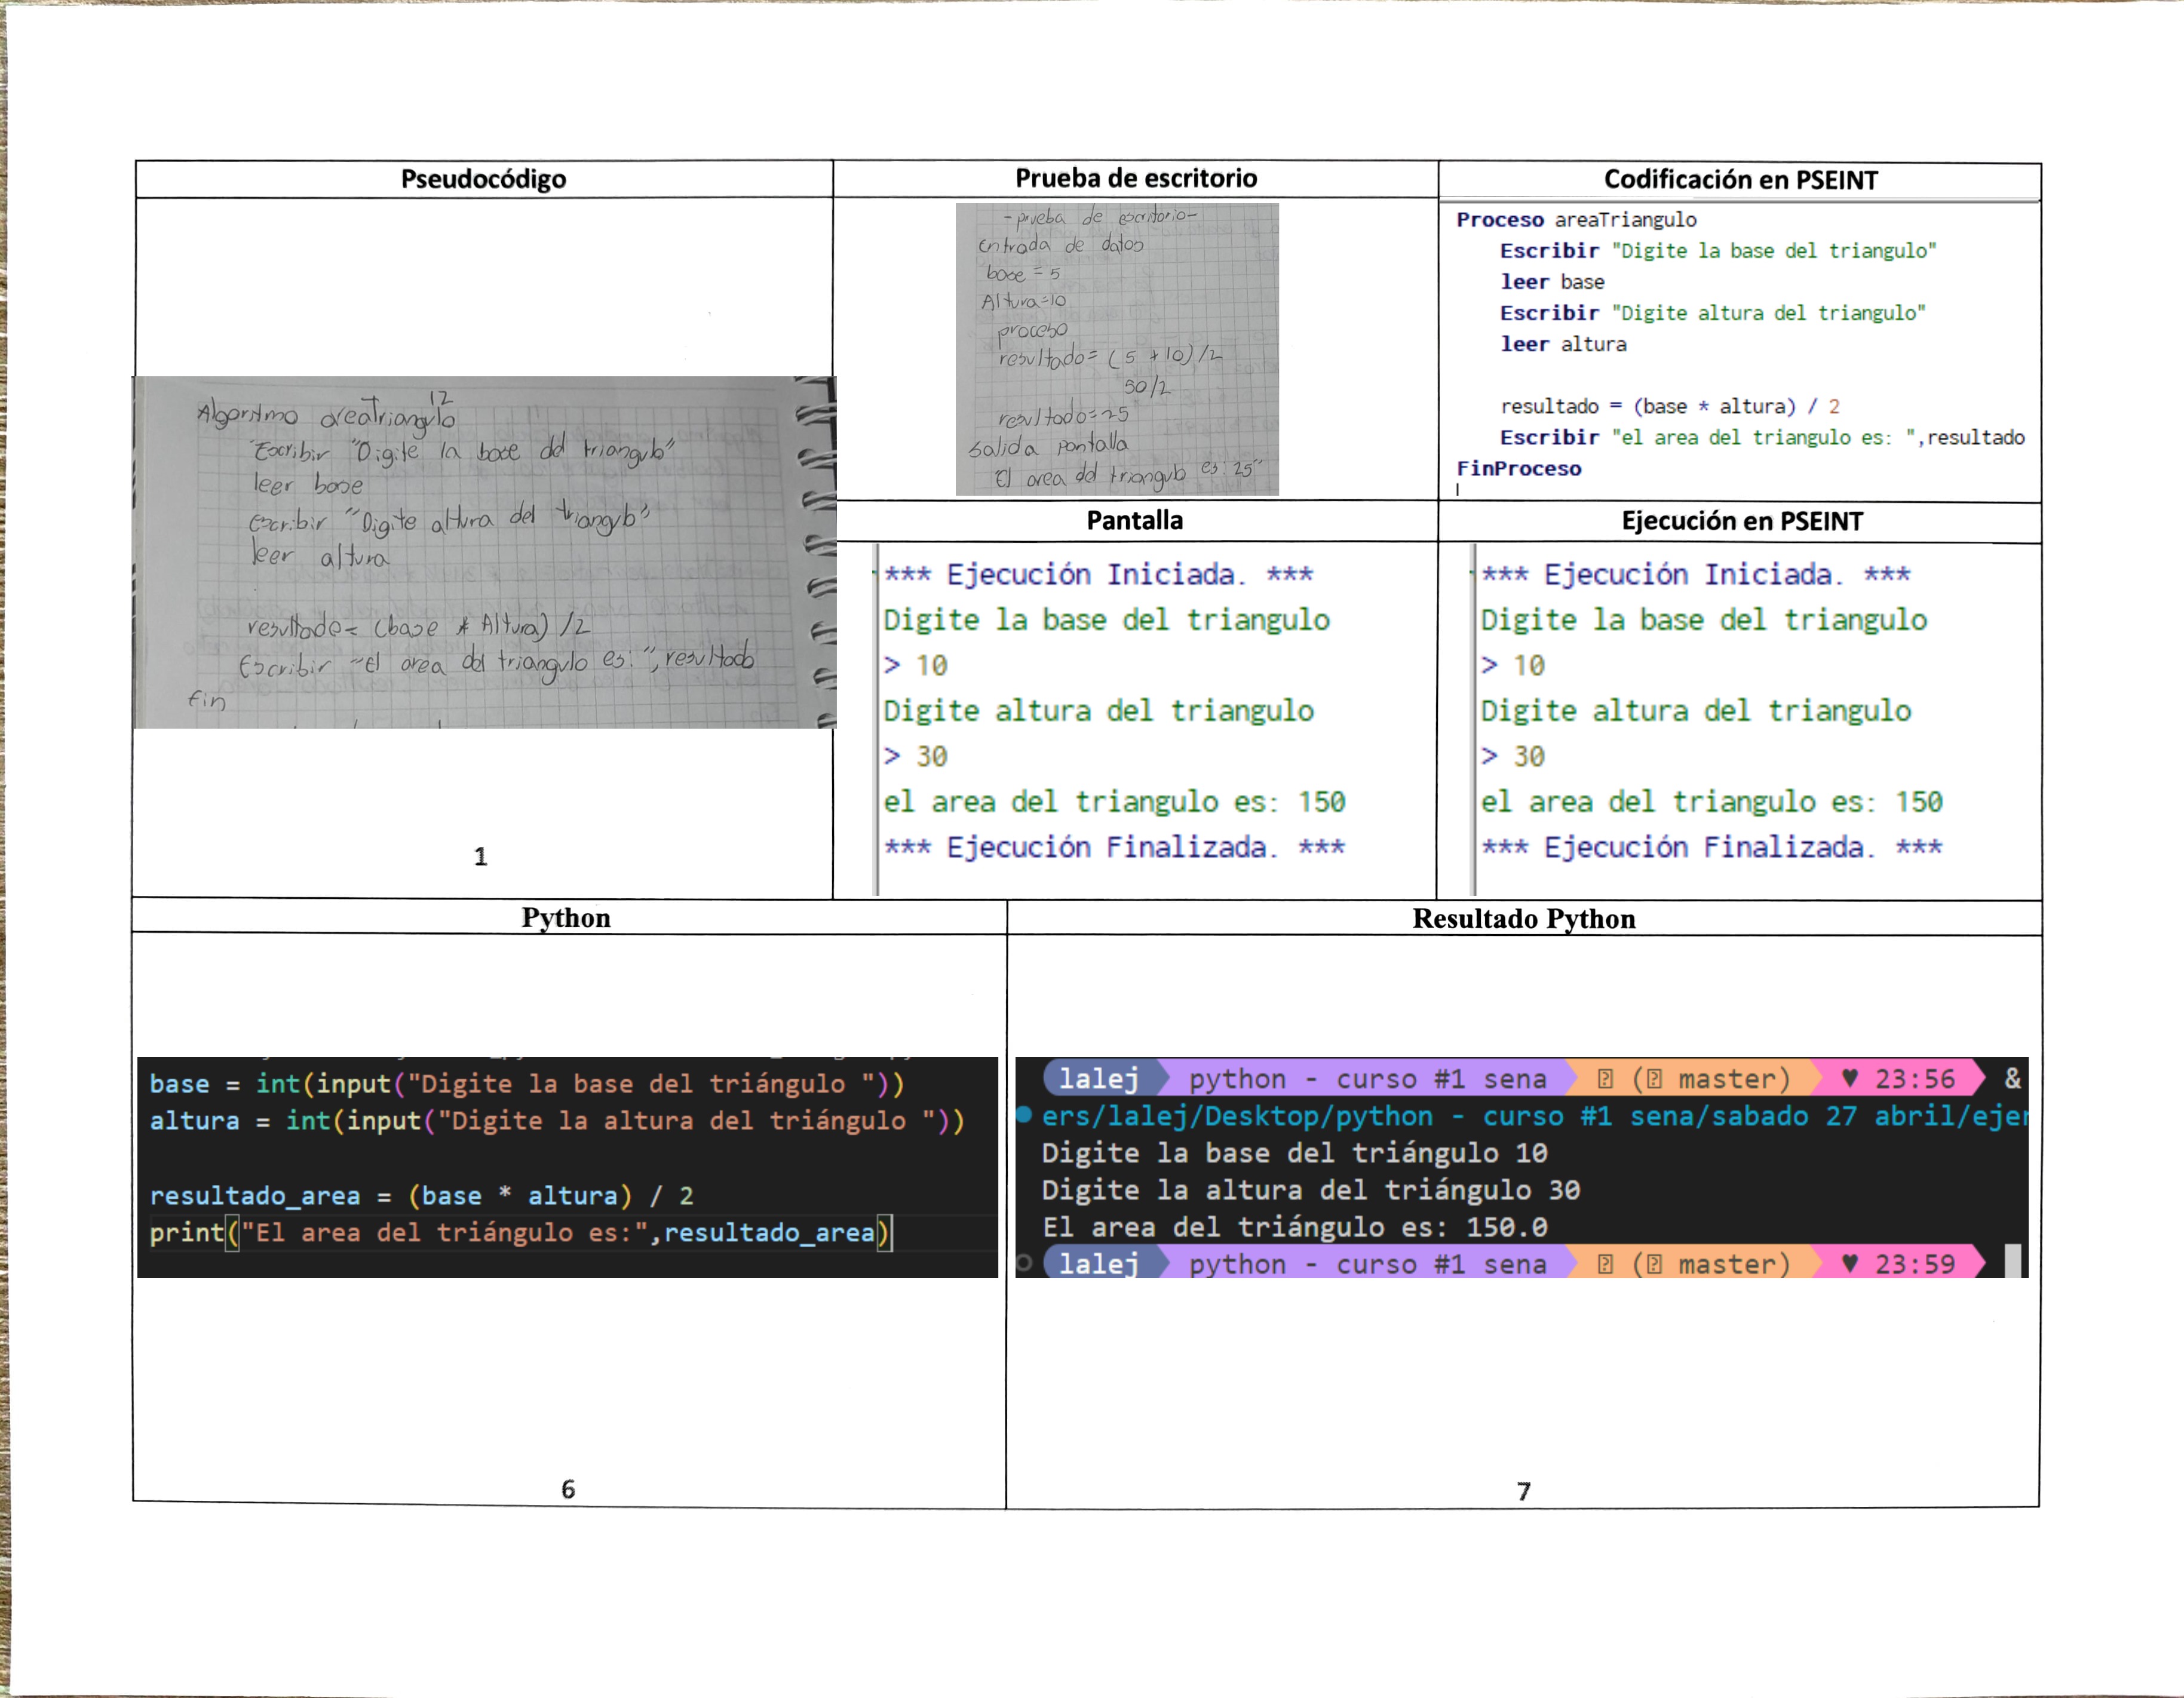 Pseudocódigo
12
Algoritmo areaTriangulo
Escribir "Digite la base del triangulo"
leer base
Escribir "Digite altura del triangulo"
leer altura
resultado= (base * Altura) /2
Escribir "el area del triangulo es:", resultado
fin
1
Prueba de escritorio
-prueba de escritorio-
Entrada de datos
base = 5
Altura=10
proceso
resultado= (5 + 10)/2
50/2
resultado=25
Salida pantalla
"El area del triangulo es: 25"
Codificación en PSEINT
Proceso areaTriangulo
Escribir "Digite la base del triangulo"
leer base
Escribir "Digite altura del triangulo"
leer altura
resultado = (base * altura) / 2
Escribir "el area del triangulo es: ",resultado
FinProceso
Pantalla
*** Ejecución Iniciada. ***
Digite la base del triangulo
> 10
Digite altura del triangulo
> 30
el area del triangulo es: 150
*** Ejecución Finalizada. ***
Ejecución en PSEINT
*** Ejecución Iniciada. ***
Digite la base del triangulo
> 10
Digite altura del triangulo
> 30
el area del triangulo es: 150
*** Ejecución Finalizada. ***
Python
base = int(input("Digite la base del triángulo "))
altura = int(input("Digite la altura del triángulo "))
resultado_area = (base * altura) / 2
print("El area del triángulo es:",resultado_area)
6
Resultado Python
lalej python - curso #1 sena ( master) ♥ 23:56 &
ers/lalej/Desktop/python - curso #1 sena/sabado 27 abril/ejer
Digite la base del triángulo 10
Digite la altura del triángulo 30
El area del triángulo es: 150.0
lalej python - curso #1 sena ( master) ♥ 23:59
7